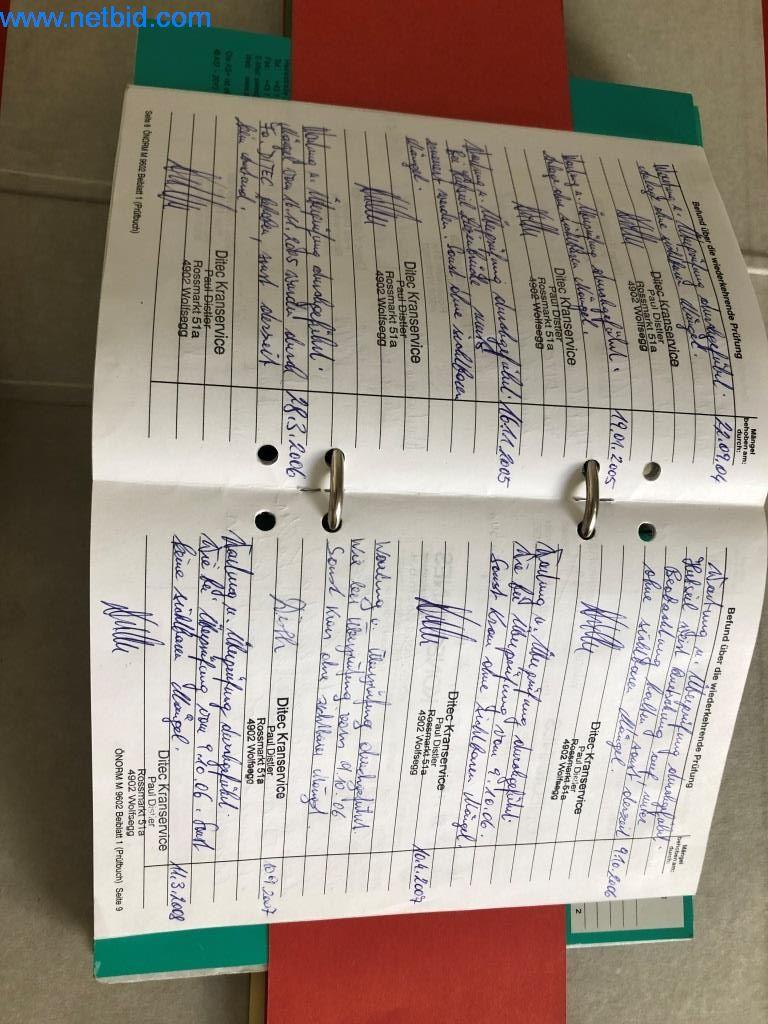 www.netbid.com
Befund über die wiederkehrende Prüfung
Mängel
behoben am:
durch:
Wartung u. Überprüfung durchgeführt.
ohne sichtbare Mängel.
22.09.04
Ditec Kranservice
Paul Distler
Rossmarkt 51a
4902 Wolfsegg
Wartung u. Überprüfung durchgeführt.
ohne sichtbaren Mängel.
19.01.2005
Ditec Kranservice
Paul Distler
Rossmarkt 51a
4902 Wolfsegg
Wartung u. Überprüfung durchgeführt.
16.11.2005
werden. Sonst ohne sichtbaren
Mängel.
Ditec Kranservice
Paul Distler
Rossmarkt 51a
4902 Wolfsegg
Wartung u. Überprüfung durchgeführt.
Mängel vom 16.11.2005 wurden durch
28.3.2006
Fa. DITEC behoben, sonst derzeit
kein
Ditec Kranservice
Paul Distler
Rossmarkt 51a
4902 Wolfsegg
Seite 8 ÖNORM M 9602 Beiblatt 1 (Prüfbuch)
Befund über die wiederkehrende Prüfung
Mängel
behoben am:
durch:
Wartung u. Überprüfung durchgeführt.
Beobachtung
ohne sichtbaren Mängel.
derzeit
9.10.2006
Ditec Kranservice
Paul Distler
Rossmarkt 51a
4902 Wolfsegg
Wartung u. Überprüfung durchgeführt.
Wie bei Überprüfung vom 9.10.06.
Sonst Kran ohne sichtbaren Mängel.
10.4.2007
Ditec Kranservice
Paul Distler
Rossmarkt 51a
4902 Wolfsegg
Wartung u. Überprüfung durchgeführt.
Wie bei Überprüfung vom 9.10.06
Sonst Kran ohne sichtbare Mängel
10.9.2007
Ditec Kranservice
Paul Distler
Rossmarkt 51a
4902 Wolfsegg
Wartung u. Überprüfung durchgeführt.
Wie bei Überprüfung vom 9.10.06. Sonst
keine sichtbaren Mängel.
11.3.2008
Ditec Kranservice
Paul Distler
Rossmarkt 51a
4902 Wolfsegg
ÖNORM M 9602 Beiblatt 1 (Prüfbuch) Seite 9